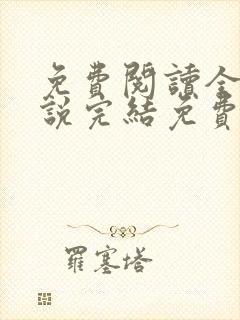 免費閱讀全
說完結免費
羅塞塔